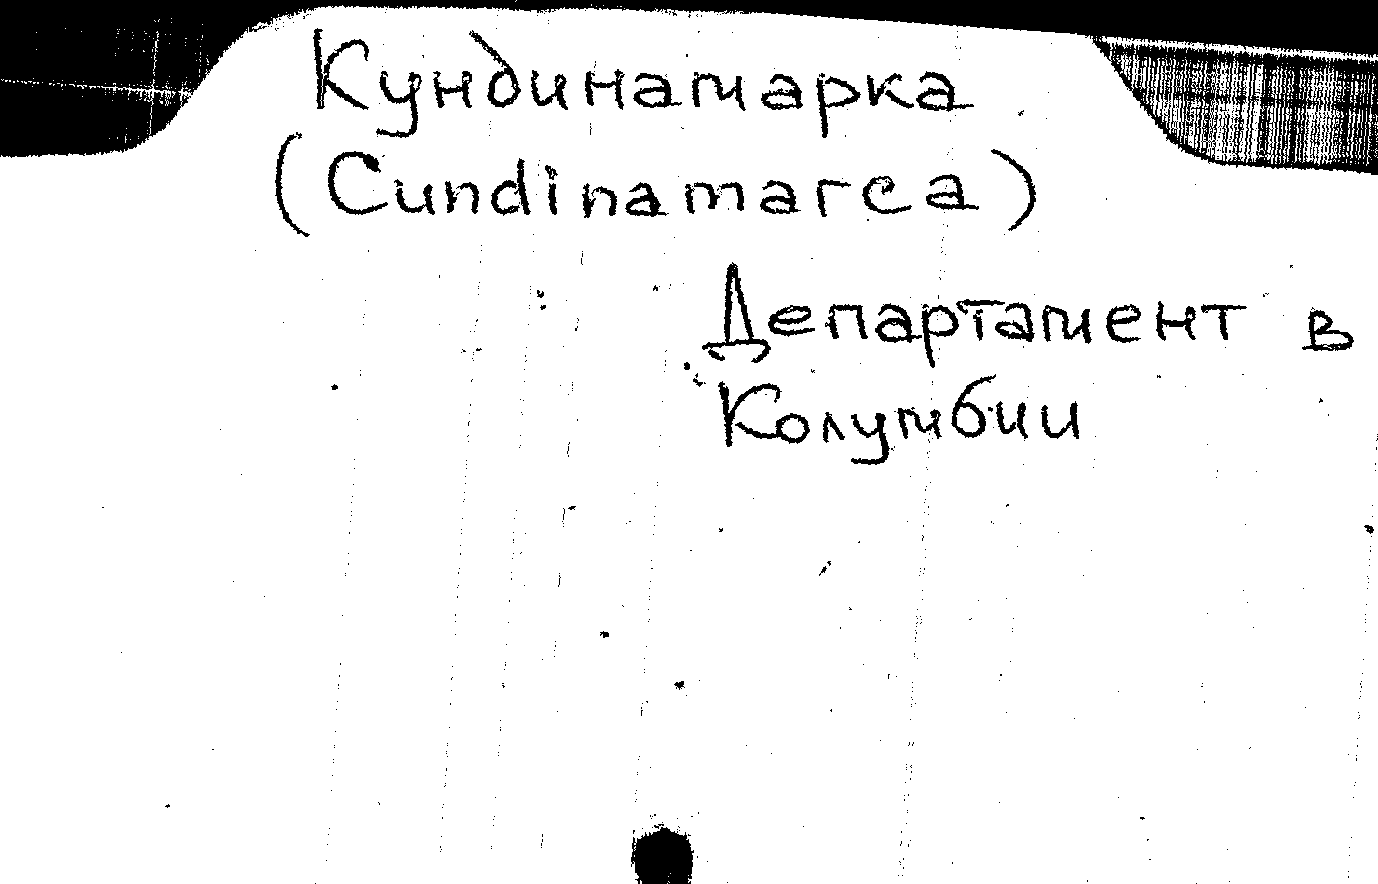 Кундинамарка
(Cundinamarca)
Департамент в
Колумбии